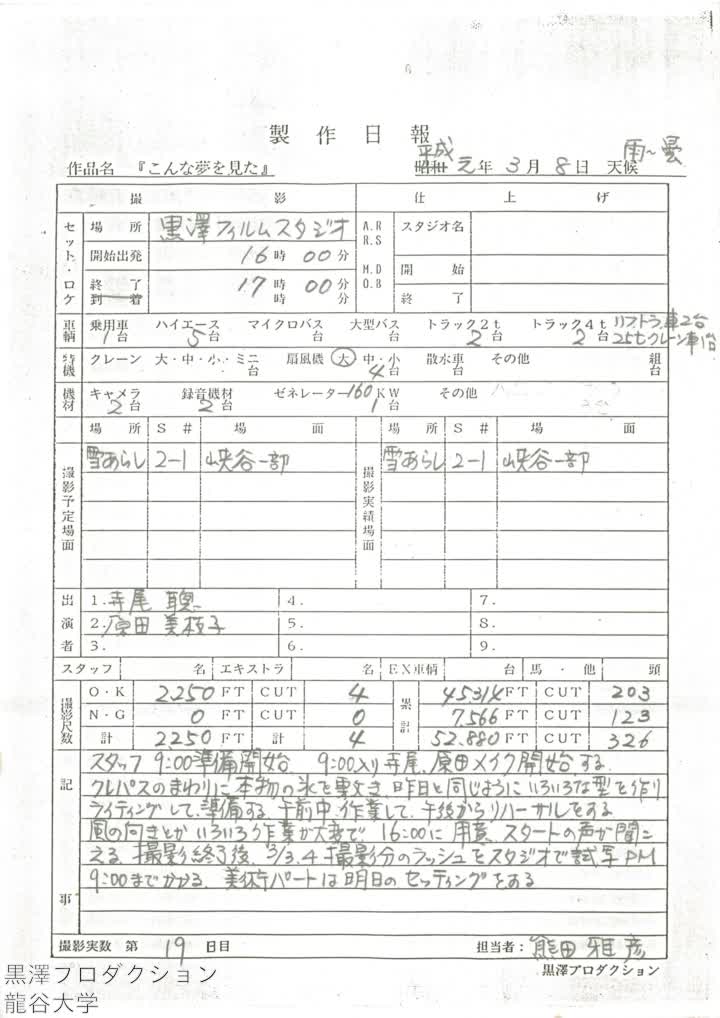 製作日報
作品名 『こんな夢を見た』 昭和 平成 元年 3月 8日 天候 雨〜曇
撮影 仕上げ
セット・ロケ 場所 黒澤フィルムスタジオ A.R R.S スタジオ名
開始出発 16時00分 M.D D.B 開始
終了 到着 17時00分 時 分 終了
車輌 乗用車 1台 ハイエース 5台 マイクロバス 台 大型バス 台 トラック2t 2台 トラック4t 2台 リフトラ車2台 25tクレーン車1台
特機 クレーン 大・中・小・ミニ 台 扇風機 大 中・小 4台 散水車 台 その他 組 台
機材 キャメラ 2台 録音機材 2台 ゼネレーター 160KW 1台 その他
撮影予定場面 場所 S# 場面 撮影実績場面 場所 S# 場面
雪あらし 2-1 峡谷一部 雪あらし 2-1 峡谷一部
出演者 1. 寺尾 聰 4. 7.
2. 原田 美枝子 5. 8.
3. 6. 9.
スタッフ 名 エキストラ 名 EX車輌 台 馬・他 頭
撮影尺数 O・K 2,250 FT CUT 4 累計 45,314 FT CUT 203
N・G 0 FT CUT 0 7,566 FT CUT 123
計 2,250 FT 計 4 52,880 FT CUT 326
記事 スタッフ 9:00準備開始、9:00入り寺尾、原田メイク開始する
クレパスのまわりに本物の氷を置き、昨日と同じようにいろいろな型を作り
ライティングして、準備する、午前中、作業して、午後からリハーサルをする
風の向きとかいろいろ作業が大変で、16:00に用意、スタートの声が聞こ
える、撮影終了後、3/3.4撮影分のラッシュをスタジオで試写PM
9:00までかかる、美術パートは明日のセッティングをする
撮影実数 第 19 日目 担当者: 熊田雅彦
黒澤プロダクション
黒澤プロダクション
龍谷大学